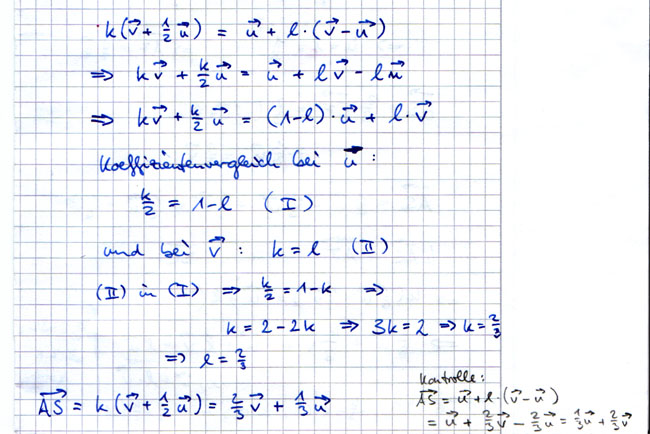 k(v⃗ + ½u⃗) = u⃗ + l·(v⃗ − u⃗)
⇒ kv⃗ + k/2 u⃗ = u⃗ + lv⃗ − lu⃗
⇒ kv⃗ + k/2 u⃗ = (1−l)·u⃗ + l·v⃗
Koeffizientenvergleich bei u⃗ :
k/2 = 1−l (I)
und bei v⃗ : k = l (II)
(II) in (I) ⇒ k/2 = 1−k ⇒
k = 2−2k ⇒ 3k = 2 ⇒ k = 2/3
⇒ l = 2/3
AS⃗ = k(v⃗ + ½u⃗) = 2/3 v⃗ + 1/3 u⃗
Kontrolle:
AS⃗ = u⃗ + l·(v⃗ − u⃗)
= u⃗ + 2/3 v⃗ − 2/3 u⃗ = 1/3 u⃗ + 2/3 v⃗